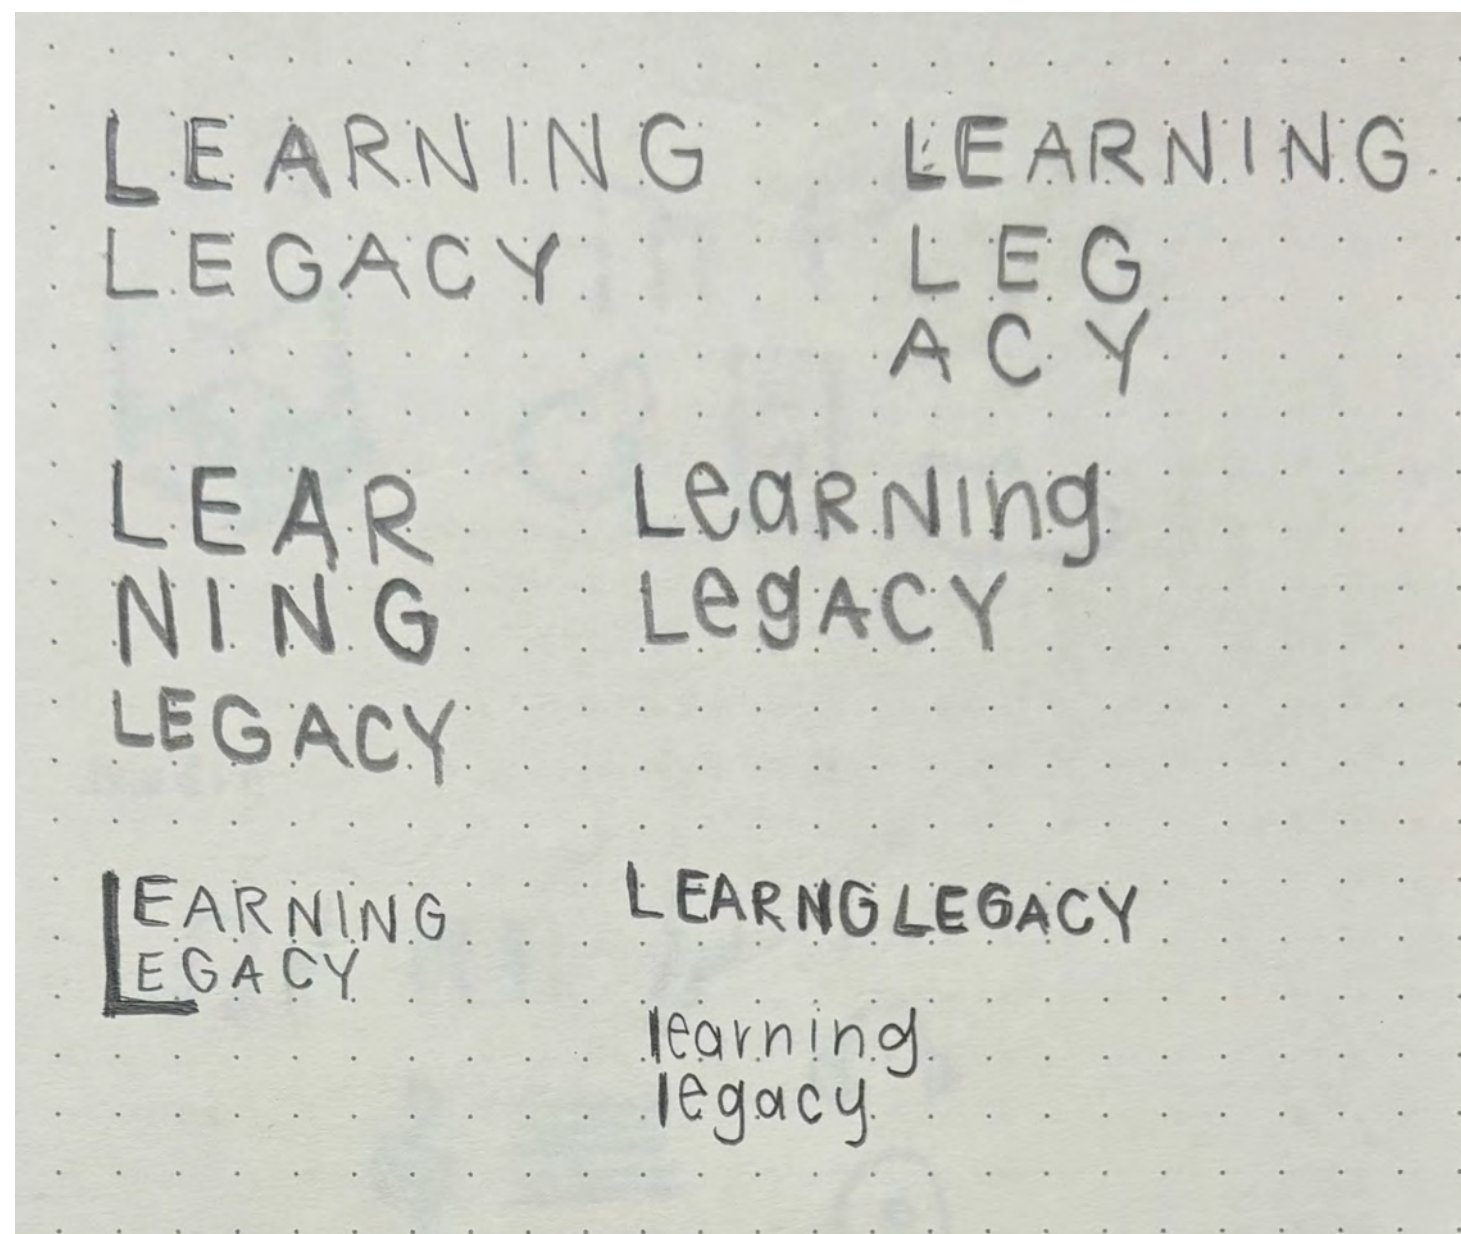 LEARNING
LEGACY
LEARNING
LEG
ACY
LEAR
NING
LEGACY
LeaRNing
LegACY
LEARNING
EGACY
LEARNGLEGACY
learning
legacy